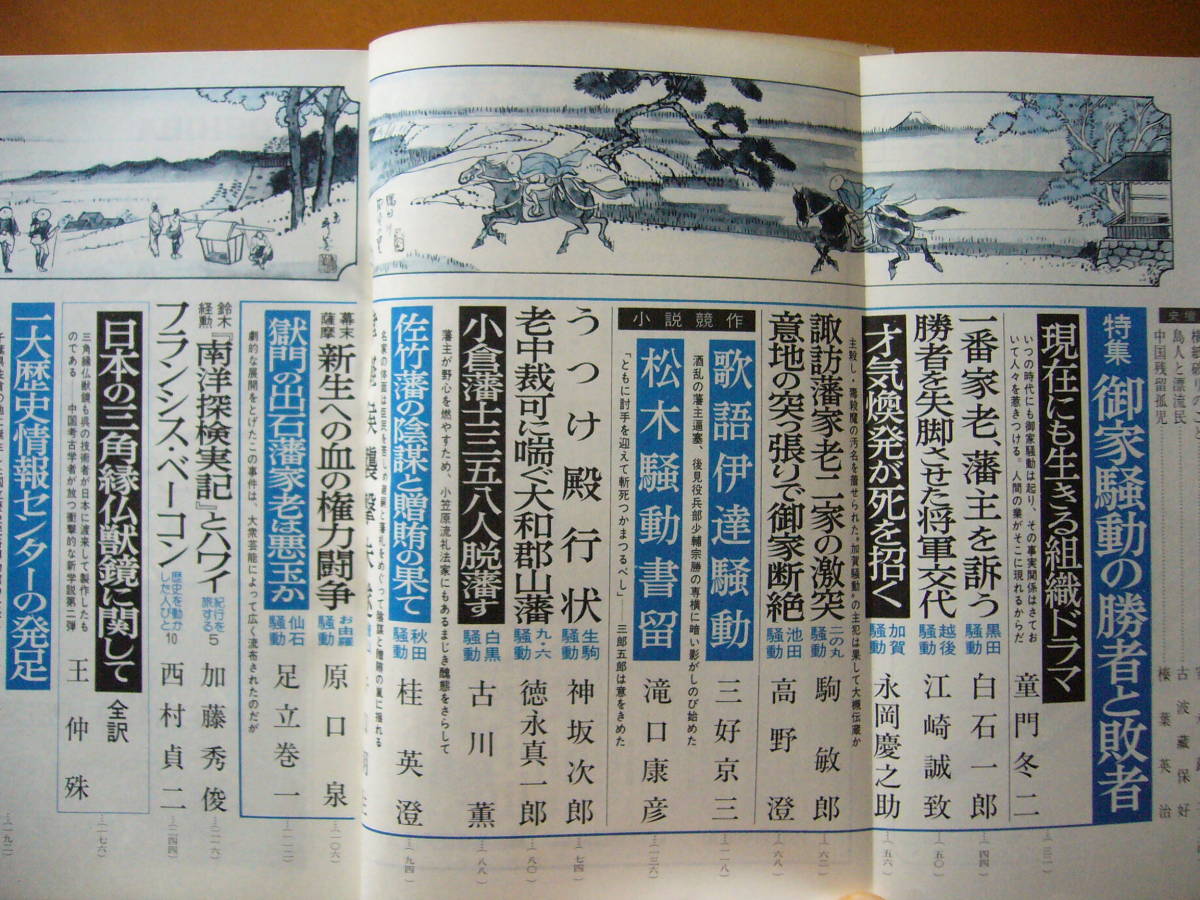 中国残留孤児
古波蔵保好
榛葉英治
特集 御家騒動の勝者と敗者
現在にも生きる組織ドラマ
童門冬二
いつの時代にも御家騒動は起り、その事実関係はさておいて人々を惹きつける。人間の業がそこに現れるからだ
一番家老、藩主を訴う 黒田騒動 白石一郎 (四四)
勝者を失脚させた将軍交代 越後騒動 江崎誠致 (五〇)
才気煥発が死を招く 加賀騒動 永岡慶之助 (五六)
主殺し・毒殺魔の汚名を着せられた“加賀騒動”の主犯は果して大槻伝蔵か
諏訪藩家老二家の激突 二の丸騒動 駒敏郎 (六二)
意地の突っ張りで御家断絶 池田騒動 高野澄 (六八)
小説競作
歌語伊達騒動 三好京三 (一一八)
酒乱の藩主逼塞、後見役兵部少輔宗勝の専横に暗い影がしのび始めた
松木騒動書留 滝口康彦 (一三六)
「ともに討手を迎えて斬死つかまつるべし」——三郎五郎は意をきめた
うつけ殿行状 生駒騒動 神坂次郎 (七四)
老中裁可に喘ぐ大和郡山藩 九・六騒動 徳永真一郎 (八〇)
小倉藩士三五八人脱藩す 白黒騒動 古川薫 (八八)
藩主が野心を燃やすため、小笠原流礼法家にもあるまじき醜態をさらして
佐竹藩の陰謀と贈賄の果て 秋田騒動 桂英澄 (九四)
幕末薩摩 新生への血の権力闘争 お由羅騒動 原口泉 (一〇六)
獄門の出石藩家老は悪玉か 仙石騒動 足立巻一 (一一二)
劇的な展開をとげたこの事件は、大衆芸能によって広く流布されたのだが
鈴木経勲『南洋探検実記』とハワイ 紀行を旅する5 加藤秀俊
フランシス・ベーコン 歴史を動かした人びと10 西村貞二 (二四四)
日本の三角縁仏獣鏡に関して 全訳 王仲殊 (一七六)
三角縁仏獣鏡も呉の技術者が日本に渡来して製作したものである——中国考古学者が放つ衝撃的な新学説第二弾
一大歴史情報センターの発足 (一九二)